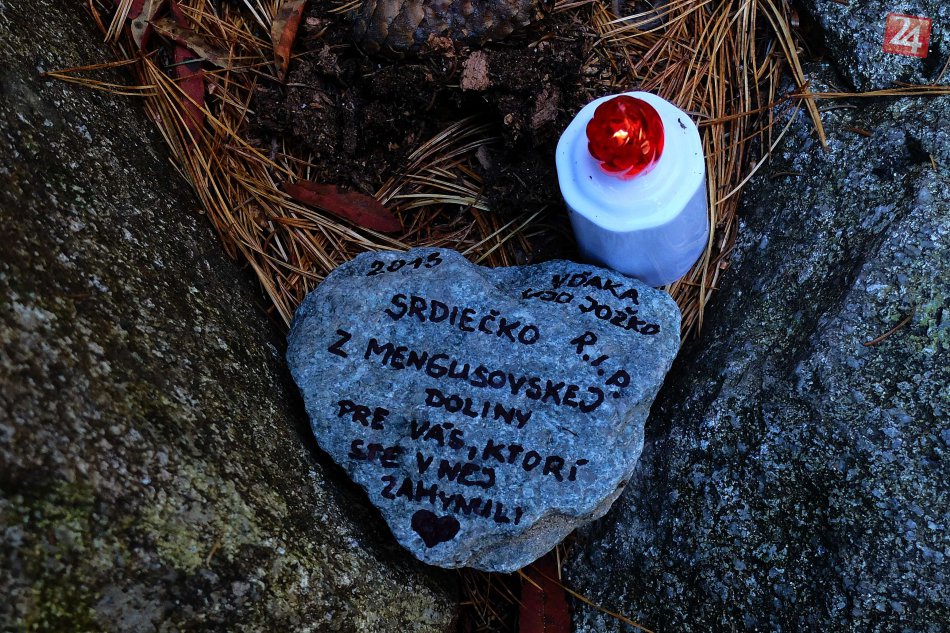 2015
VĎAKA
UJO JOŽKO
R.I.P.
SRDIEČKO
Z MENGUSOVSKEJ
DOLINY
PRE VÁS, KTORÍ
STE V NEJ
ZAHYNULI
24